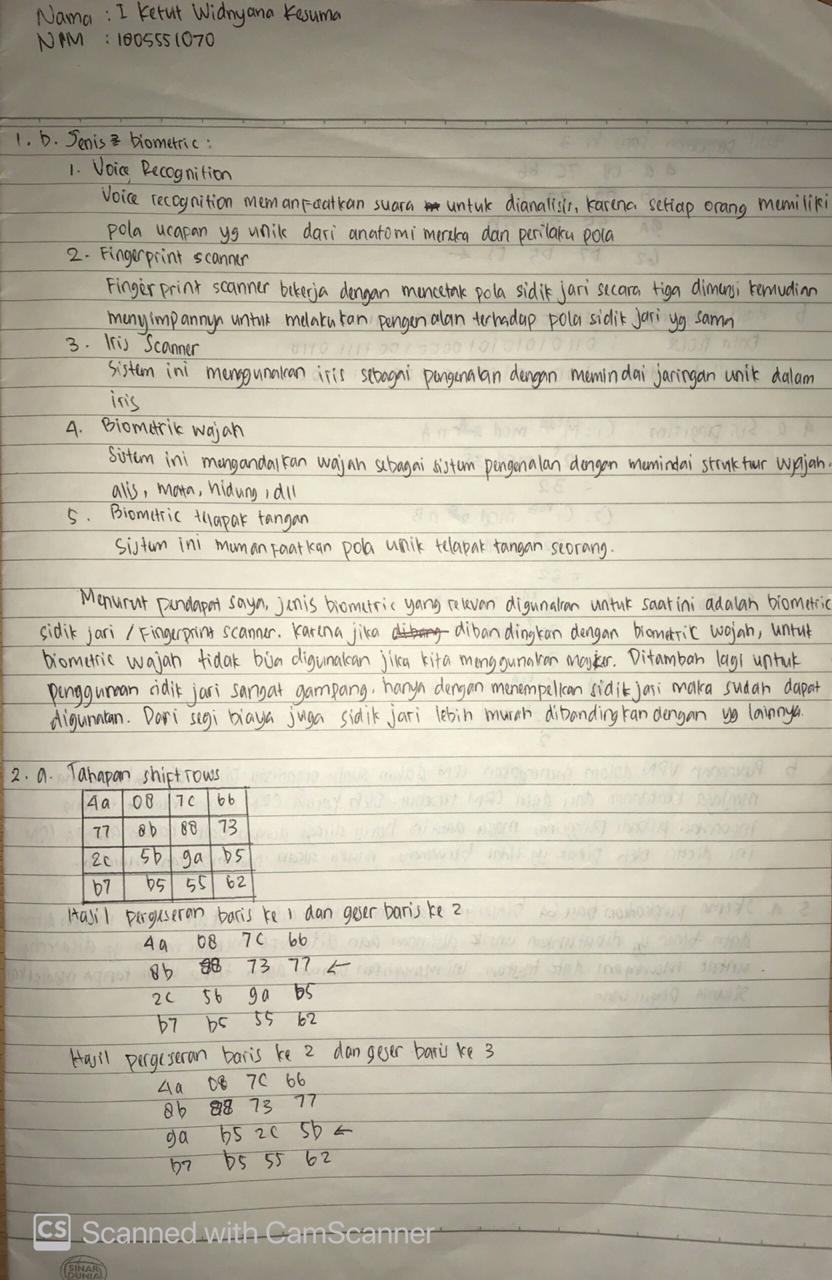 Nama : I Ketut Widnyana Kesuma
NPM : 1805551070
1. b. Jenis2 biometric :
1. Voice Recognition
Voice recognition memanfaatkan suara untuk dianalisis, karena setiap orang memiliki
pola ucapan yg unik dari anatomi mereka dan perilaku pola
2. Fingerprint scanner
Fingerprint scanner bekerja dengan mencetak pola sidik jari secara tiga dimensi kemudian
menyimpannya untuk melakukan pengenalan terhadap pola sidik jari yg sama
3. Iris Scanner
Sistem ini menggunakan iris sebagai pengenalan dengan memindai jaringan unik dalam
iris
4. Biometrik wajah
Sistem ini mengandalkan wajah sebagai sistem pengenalan dengan memindai struktur wajah.
alis, mata, hidung, dll
5. Biometric telapak tangan
Sistem ini memanfaatkan pola unik telapak tangan seorang.
Menurut pendapat saya, jenis biometric yang relevan digunakan untuk saat ini adalah biometric
sidik jari / Fingerprint scanner. Karena jika dibang dibandingkan dengan biometric wajah, untuk
biometric wajah tidak bisa digunakan jika kita menggunakan masker. Ditambah lagi untuk
penggunaan sidik jari sangat gampang, hanya dengan menempelkan sidik jari maka sudah dapat
digunakan. Dari segi biaya juga sidik jari lebih murah dibandingkan dengan yg lainnya.
2. a. Tahapan shift rows
4a 08 7c 66
77 8b 88 73
2c 5b 9a b5
b7 b5 55 62
Hasil pergeseran baris ke 1 dan geser baris ke 2
4a 08 7c 66
8b 88 73 77 ←
2c 5b 9a b5
b7 b5 55 62
Hasil pergeseran baris ke 2 dan geser baris ke 3
4a 08 7c 66
8b 88 73 77
9a b5 2c 5b ←
b7 b5 55 62
CS Scanned with CamScanner
SINAR
DUNIA